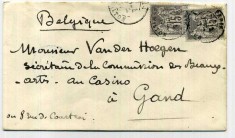 Belgique
Monsieur Van der Hoegen
Secrétaire de la Commission des Beaux-
arts - au Casino
à Gand
ou 8 rue de Courtrai